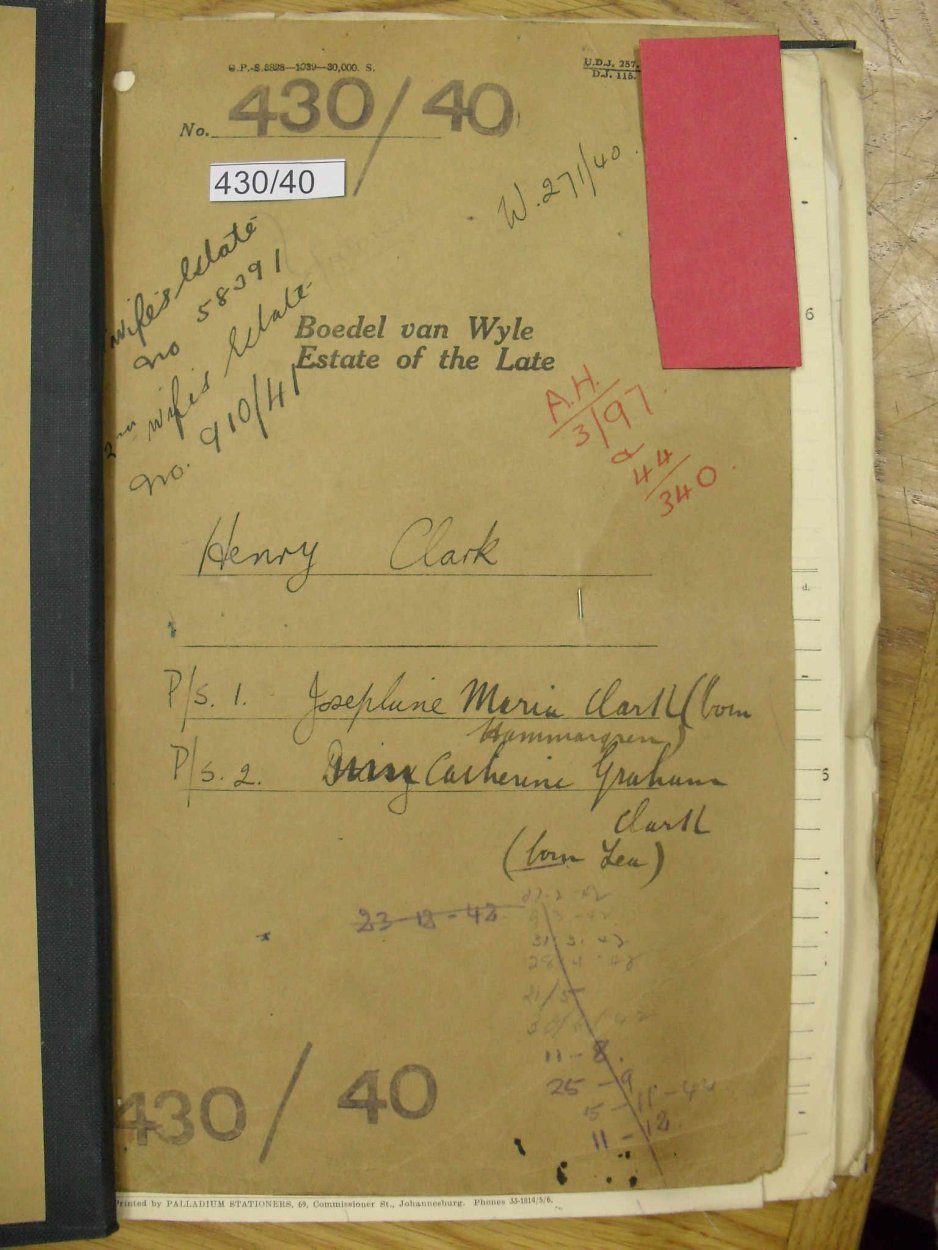 G.P.-S.8828—1939—30,000. S.
U.D.J. 257.
D.J. 115.
No. 430/40
430/40
W. 271/40.
wife's Estate
No 58391
2nd wife's Estate
No. 910/41
Boedel van Wyle
Estate of the Late
A.H.
3/97
&
44/340.
Henry Clark
P/s. 1. Josephine Maria Clark (born
Hammargren)
P/s. 2. Catherine Graham
Clark
(born Lea)
23-12-42
31.3.42
28.4.42
21/5
11-8.
25-9
5-11-42
11-12
430/40
Printed by PALLADIUM STATIONERS, 69, Commissioner St., Johannesburg. Phones 33-1814/5/6.
6
d.
5